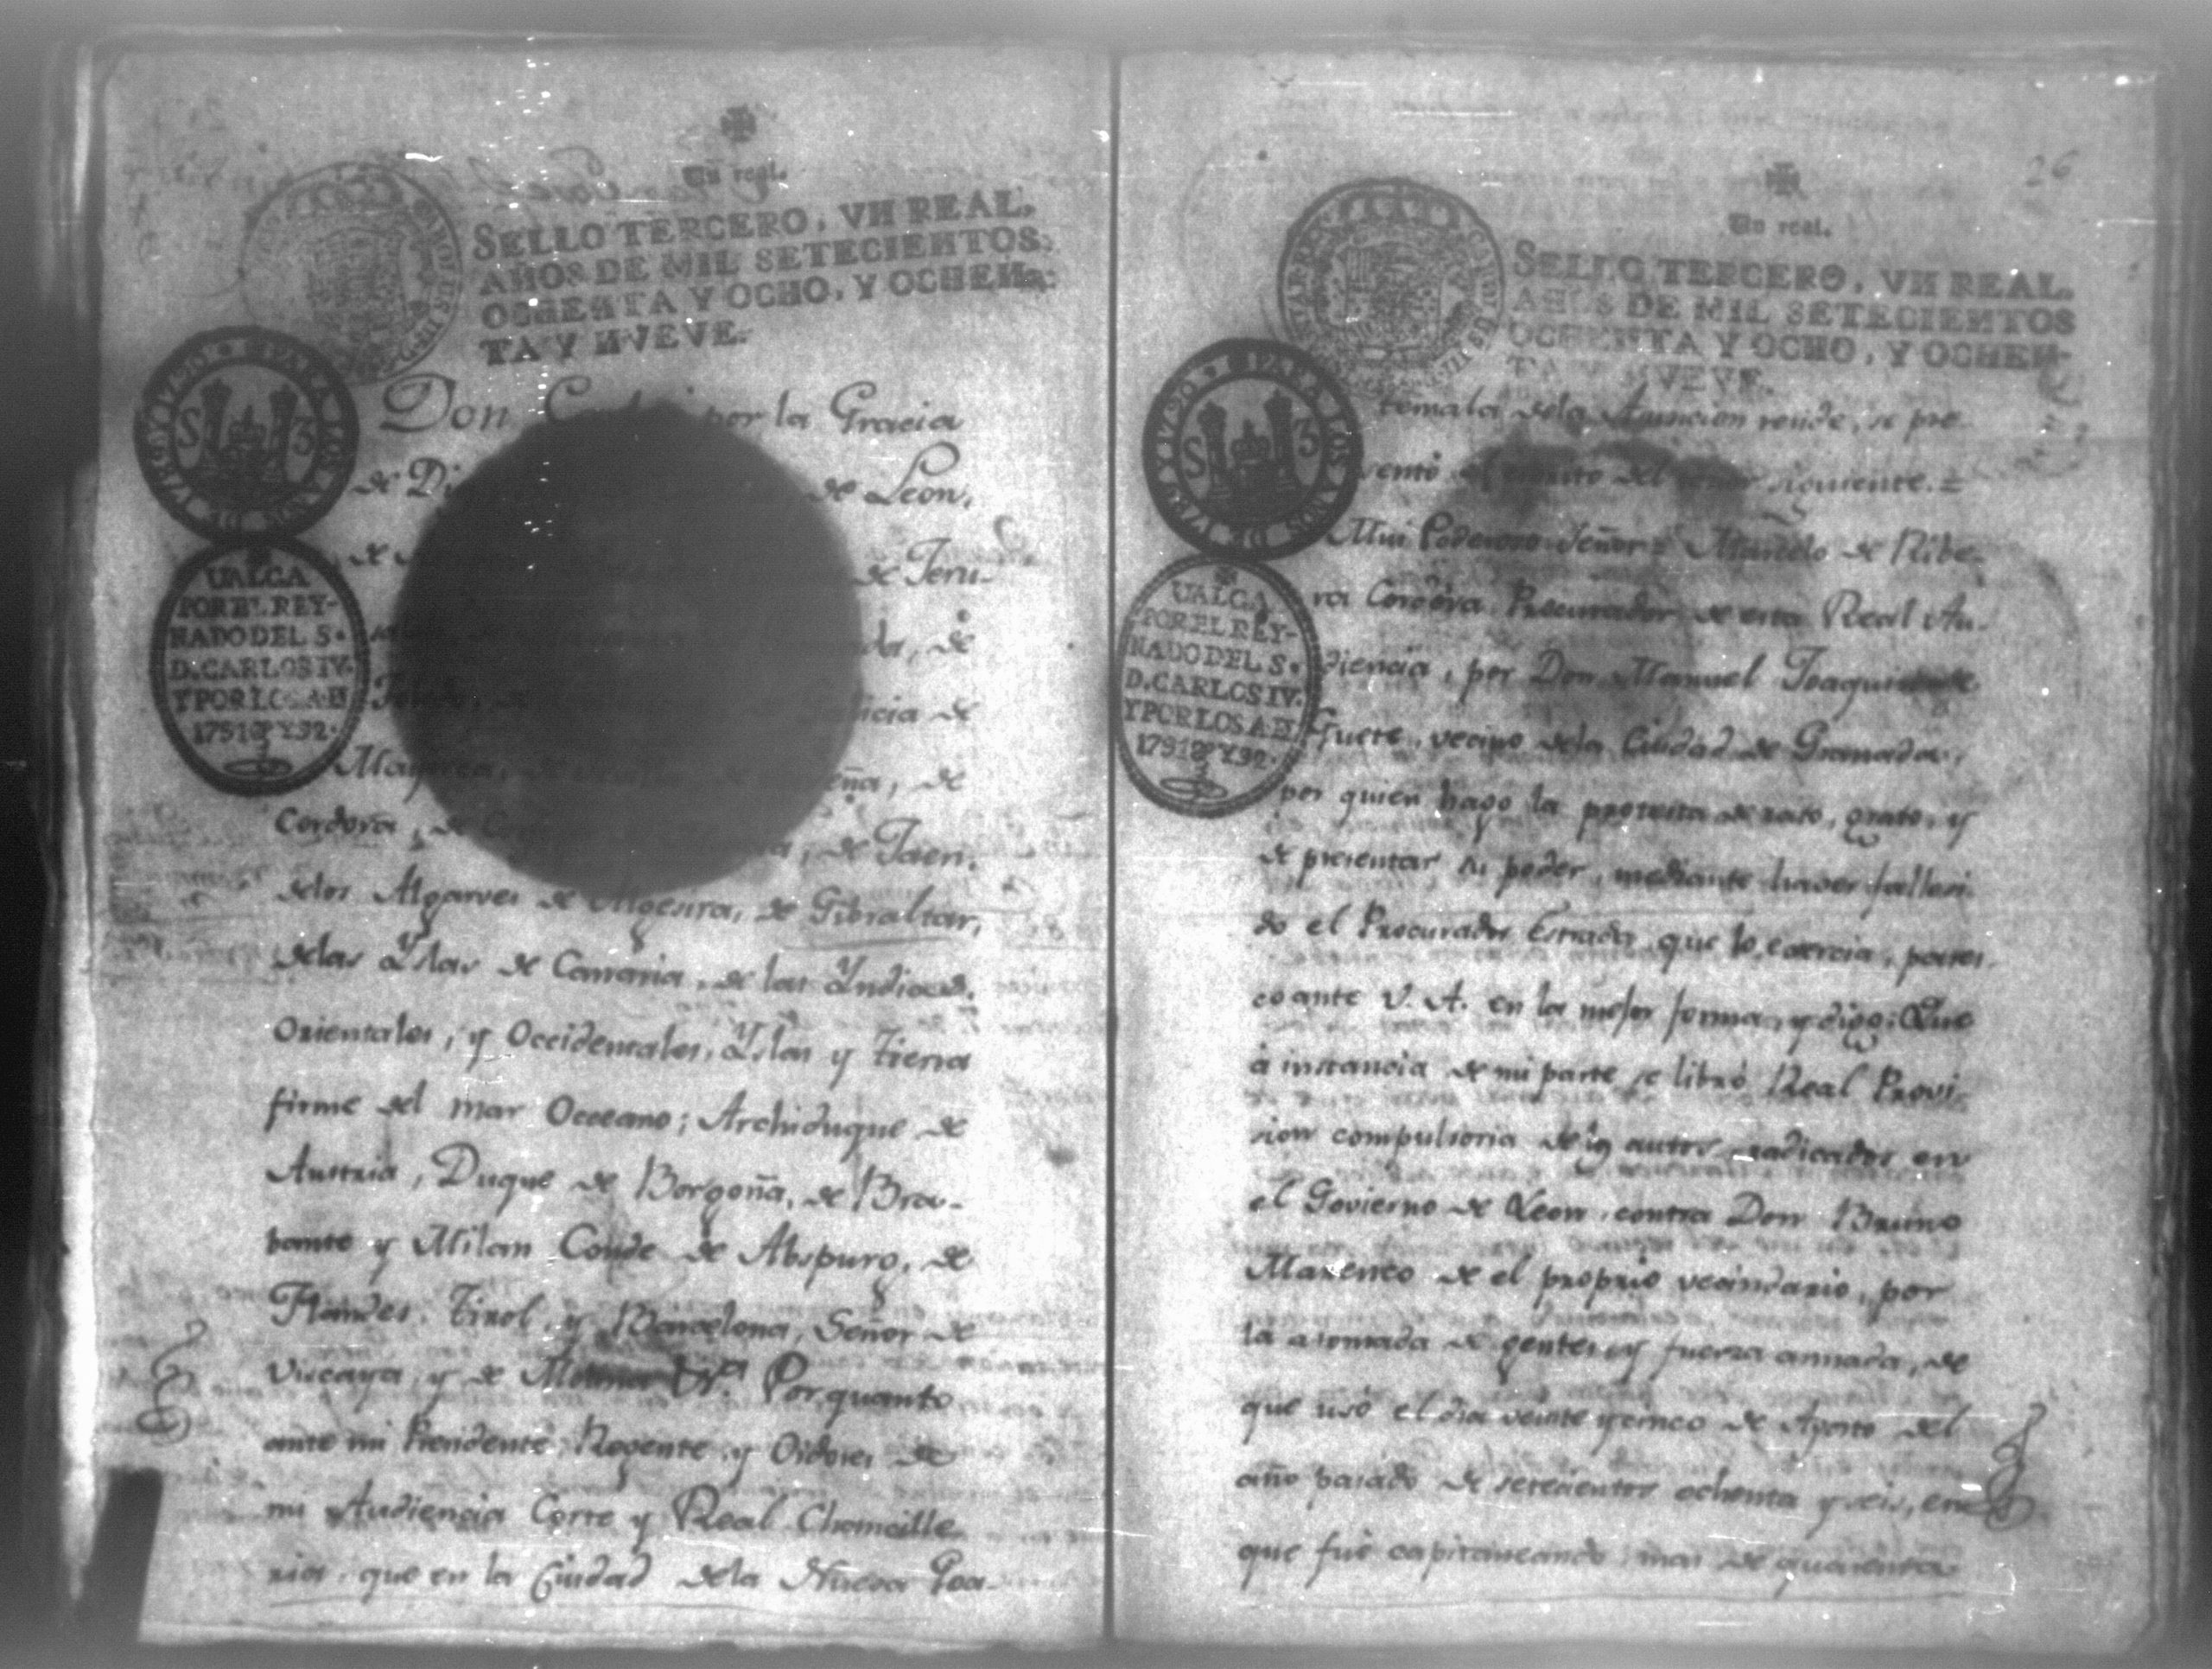 Un real.
SELLO TERCERO, VN REAL,
AÑOS DE MIL SETECIENTOS
OCHENTA Y OCHO, Y OCHEN-
TA Y NVEVE.
PARA LOS AÑOS DE 1789 Y 1790
S 3
VALGA
POR EL REY-
NADO DEL S.
D. CARLOS IV.
Y POR LOS AÑ
1791 Y 92.
Don Carlos por la Gracia
de Di de Leon,
de de Jeru-
da, de
Toledo, de licia de
Mayorca, de eña, de
Cordova, de a, de Jaen,
delos Algarves de Algesira, de Gibraltar,
delas Yslas de Canaria, de las Yndias,
Orientales, y Occidentales, Yslas y tierra
firme del mar Occeano; Archiduque de
Austria, Duque de Borgoña, de Bra-
bante y Milan Conde de Abspurg, de
Flandes, Tirol, y Barcelona, Señor de
Viscaya, y de Molina &ra. Por quanto
ante mi Precidente, Regente, y Oidores de
mi Audiencia Corte y Real Chancille
ria, que en la Ciudad dela Nueva Goa-
26
Un real.
SELLO TERCERO, VN REAL,
AÑOS DE MIL SETECIENTOS
OCHENTA Y OCHO, Y OCHEN-
TA Y NVEVE.
PARA LOS AÑOS DE 1789 Y 1790
S 3
VALGA
POR EL REY-
NADO DEL S.
D. CARLOS IV.
Y POR LOS AÑ
1791 Y 92.
temala dela Asuncion reside, se pre-
sentó el escrito del tenor siguiente. =
Mui Poderoso Señor = Marcelo de Ribe-
ra Cordova Procurador de esta Real Au-
diencia, por Don Manuel Joaquin
fuerte, vecino dela Ciudad de Granada,
por quien hago la protexta de rato, grato, y
de presentar su poder, mediante haver falleci-
do el Procurador Estrada, que lo exercia, pares-
co ante V. A. en la mejor forma, y digo: Que
à instancia de mi parte se libró Real Provi-
sion compulsoria delos autos radicados en
el Govierno de Leon, contra Don Bruno
Marenco de el proprio vecindario, por
la asonada de gentes, y fuerza armada, de
que usó el dia veinte y cinco de Agosto del
año pasado de setecientos ochenta y seis, en
que fue capitaneando mas de quarenta